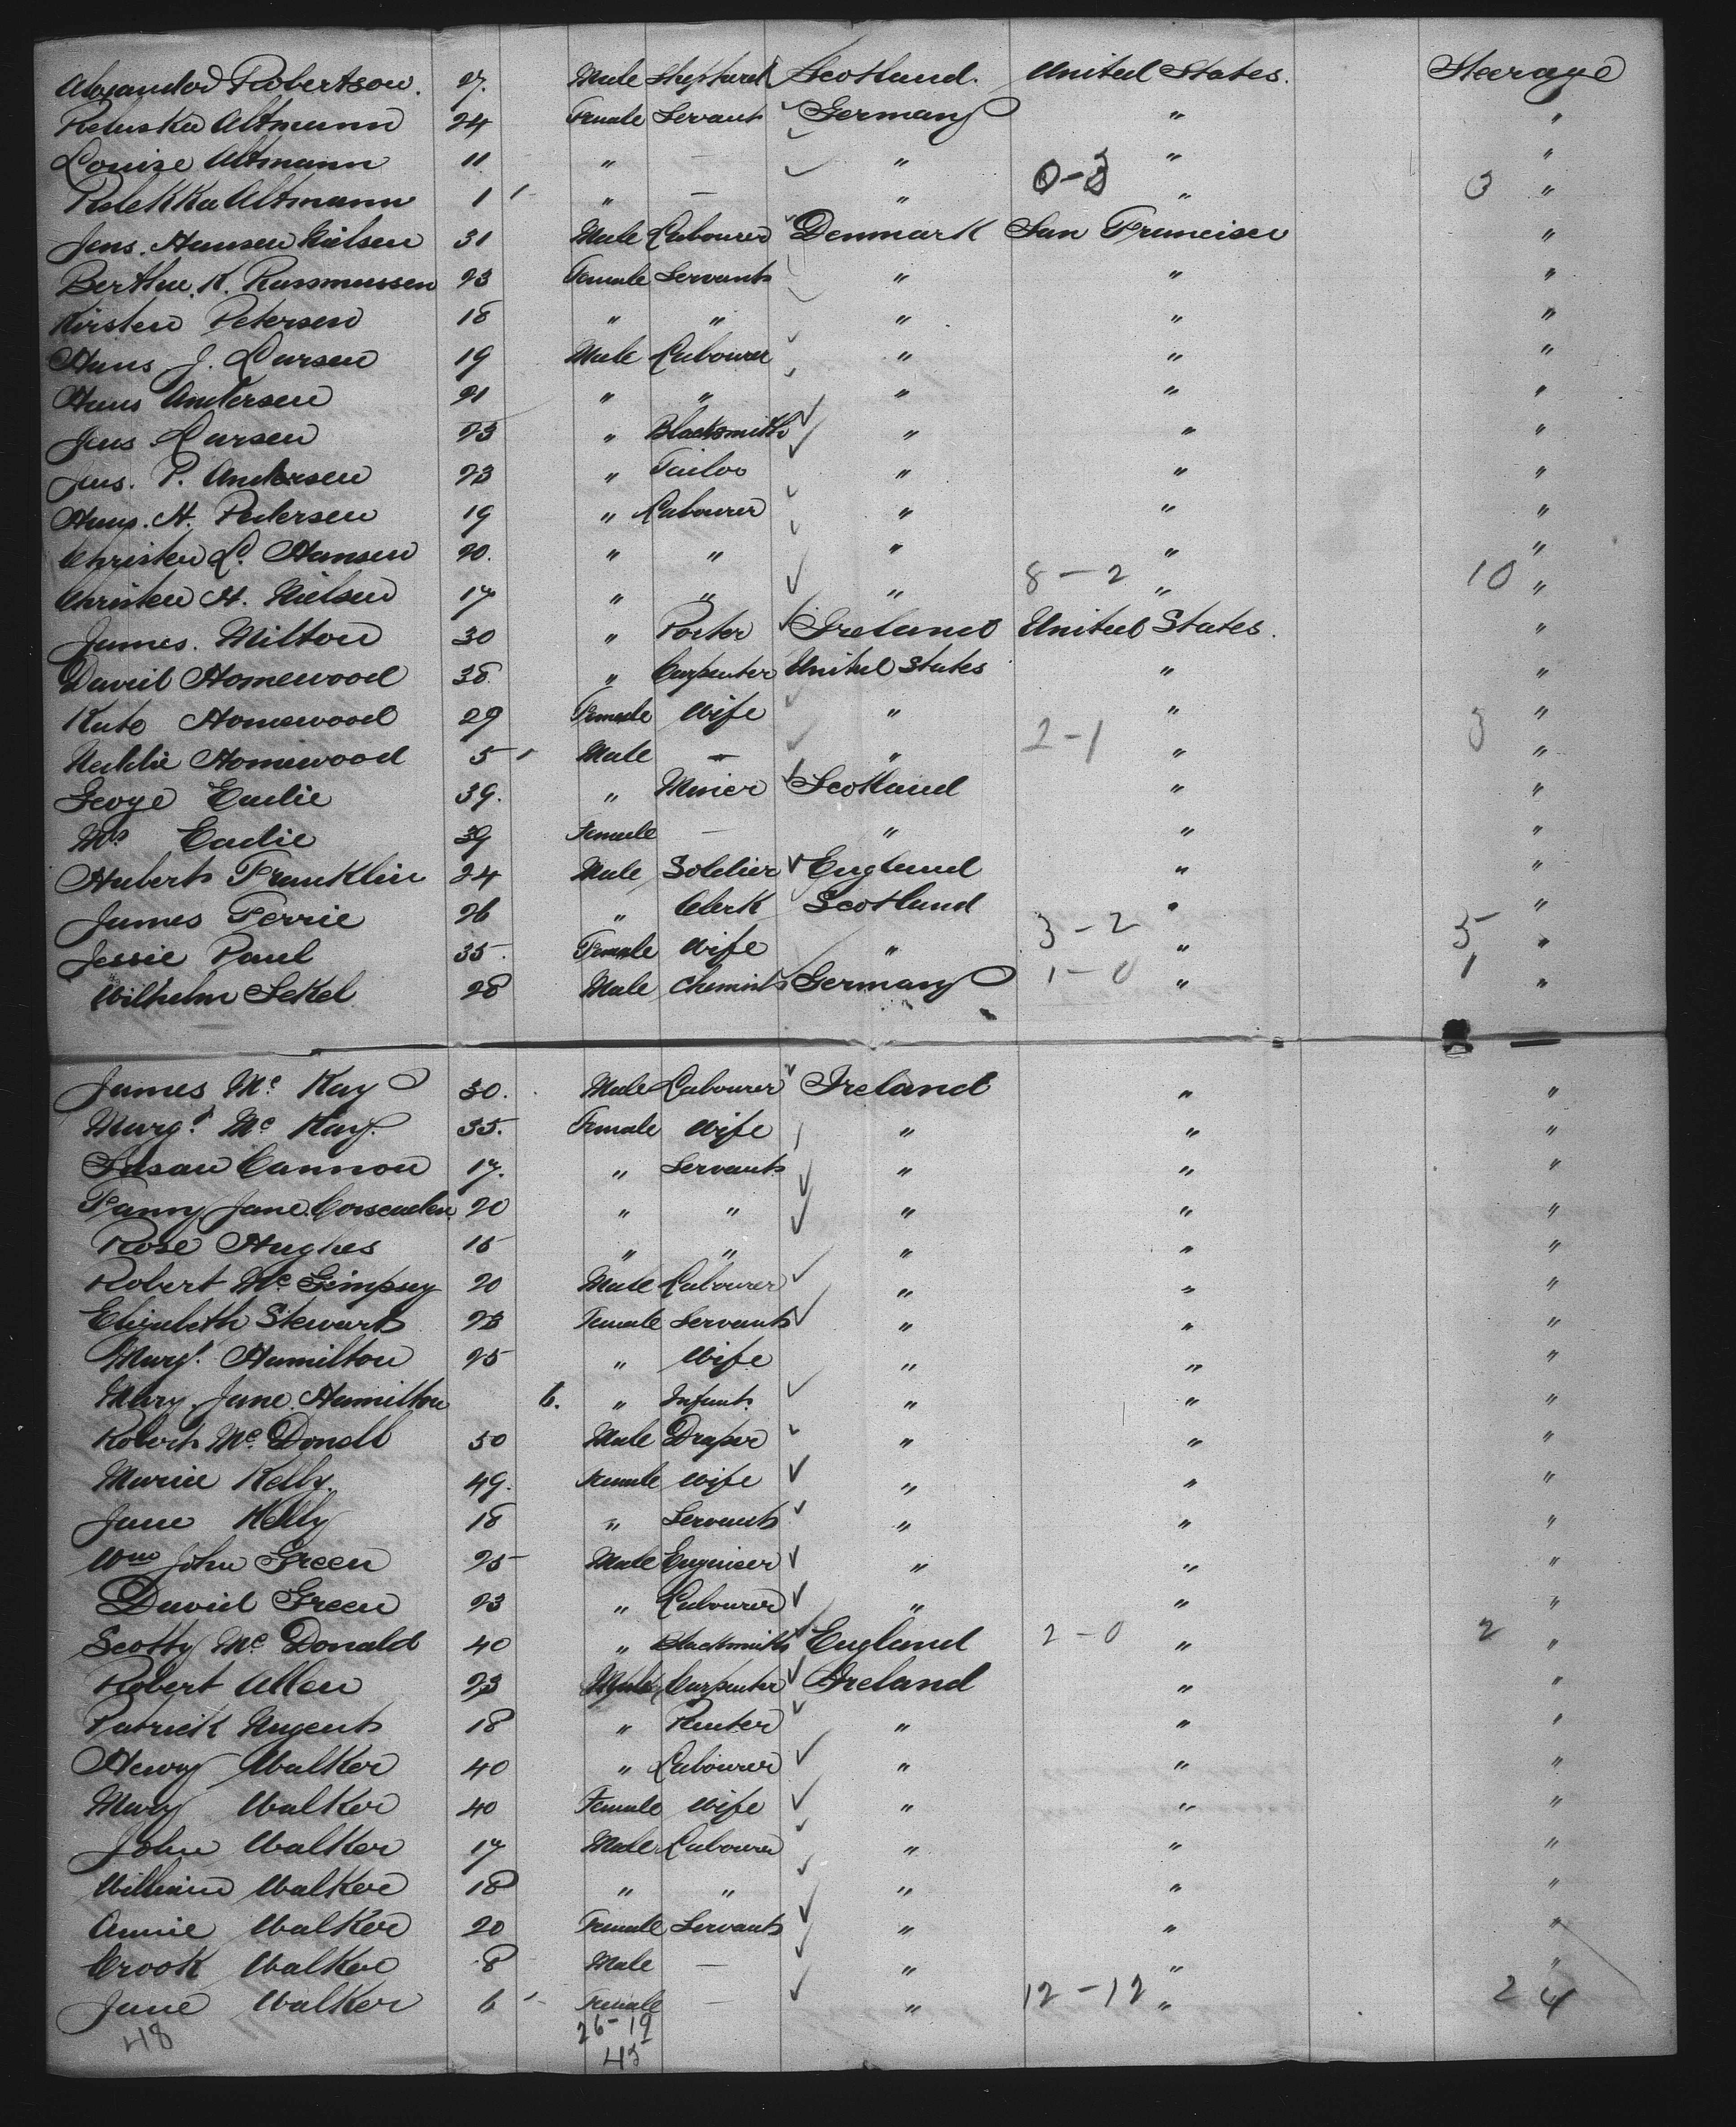 Alexander Robertson. 27. Male Shepherd Scotland. United States. Steerage
Altmann 24 Female Servant Germany " "
Louise Altmann 11 " — " " "
Altmann 1 " — " 0-3 " 3 "
Jens. Hansen Nielsen 31 Male Labourer Denmark San Francisco "
Berthe. K. Rasmussen 23 Female Servant " " "
Kirsten Petersen 18 " " " " "
Hans J. Larsen 19 Male Labourer " " "
Hans Andersen 21 " " " " "
Jens Larsen 23 " Blacksmith " " "
Jens. P. Andersen 23 " Tailor " " "
Hans. H. Pedersen 19 " Labourer " " "
Christen L. Hansen 20. " " " " "
Christen H. Nielsen 17 " " " 8-2 " 10 "
James. Milton 30 " Porter Ireland United States. "
David Homewood 38 " Carpenter United States " "
Kate Homewood 29 Female Wife " " "
Homewood 5 Male — " 2-1 " 3 "
George Eadie 39. " Miner Scotland " "
Mrs Eadie 39 Female — " " "
Hubert Franklin 24 Male Soldier England " "
James Ferrie 26 " Clerk Scotland " "
Jessie Paul 35. Female Wife " 3-2 " 5 "
Wilhelm Sekel 28 Male Chemist Germany 1-0 " 1 "
James Mc Kay 30. Male Labourer Ireland " "
Margt Mc Kay. 35. Female Wife " " "
Susan Cannon 17. " Servant " " "
Fanny Jane. 20 " " " " "
Rose Hughes 18 " " " " "
Robert Mc Gimpsey 20 Male Labourer " " "
Elizabeth Stewart 23 Female Servant " " "
Margt. Hamilton 25 " Wife " " "
Mary. Jane. Hamilton 6. " Infant " " "
Robert Mc Donell 50 Male Draper " " "
Maria Kelly. 49. Female Wife " " "
Jane Kelly 18 " Servant " " "
Wm John Green 25 Male Engineer " " "
David Green 23 " Labourer " " "
Scotty Mc Donald 40 " Blacksmith England 2-0 " 2 "
Robert Allen 23 Male Carpenter Ireland " "
Patrick Nugent 18 " " " "
Henry Walker 40 " Labourer " " "
Mary Walker 40 Female Wife " " "
John Walker 17 Male Labourer " " "
William Walker 18 " " " " "
Annie Walker 20 Female Servant " " "
Crook Walker 8 Male — " " "
Jane Walker 6 Female — " 12-12 " 24
48 26-19
45